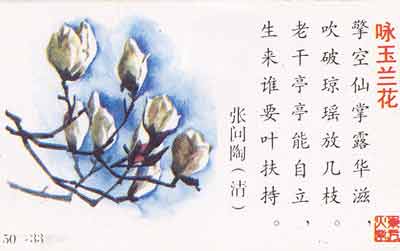 咏玉兰花
擎空仙掌露华滋，
吹破琼瑶放几枝。
老干亭亭能自立，
生来谁要叶扶持。
张问陶（清）
50-33